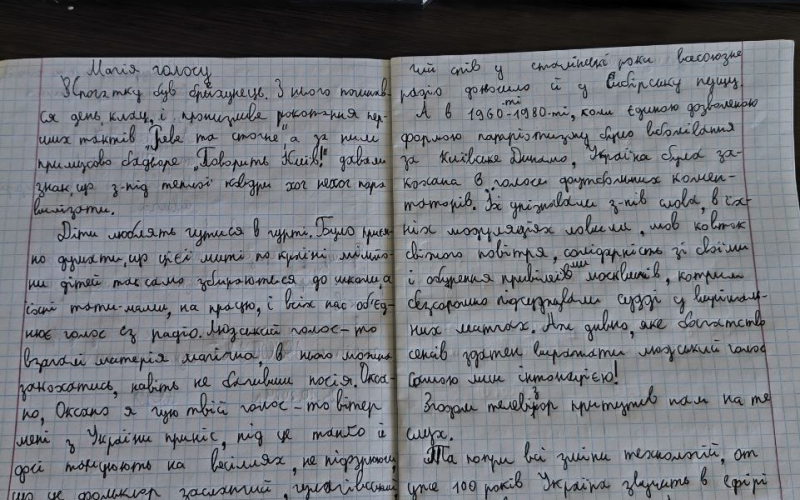 Магія голосу
Спочатку був брязкунець. З нього починав-
ся день кладу, і пронизливе рокотання пер-
ших тактів „Реве та стогне", а за ними
примусово бадьоре „Говорить Київ!" давали
знак, що з-під теплої ковдри хоч нехоч пора
вилізати.
Діти люблять гутися в гурті. Було приєм-
но думати, що цієї миті по країні мільйо-
ни дітей так само збираються до школи, а
їхні тати-мами, на працю, і всіх нас об'єд-
нює голос із радіо. Людський голос – то
взагалі матерія магічна, в нього можна
закохатись, навіть не бачивши носія. Окса-
но, Оксано я чую твій голос – то вітер
мені з України приніс, під це танго й
досі танцюють на весіллях, не підозрюючи,
що це фольклор засланчий, гулагівський
чий спів у сталінські роки всесоюзне
радіо доносило й у Сибірську пущу.
А в 1960-ті-1980-ті, коли єдиною дозволеною
формою патріотизму було вболівання
за Київське Динамо, Україна була за-
кохана в голоси футбольних комен-
таторів. Їх упізнавали з-пів слова, в їх-
ніх модуляціях ловили, мов ковток
свіжого повітря, солідарність зі своїми
і обурення привілейованими москвичів, котрим
безсоромно підсуджували судді у вирішаль-
них матчах. Аж дивно, яке багатство
сенсів здатен виражати людський голос
самою лиш інтонацією!
Згодом телевізор притупив нам на те
слух.
Та попри всі зміни технологій, от
уже 100 років Україна звучить в ефірі